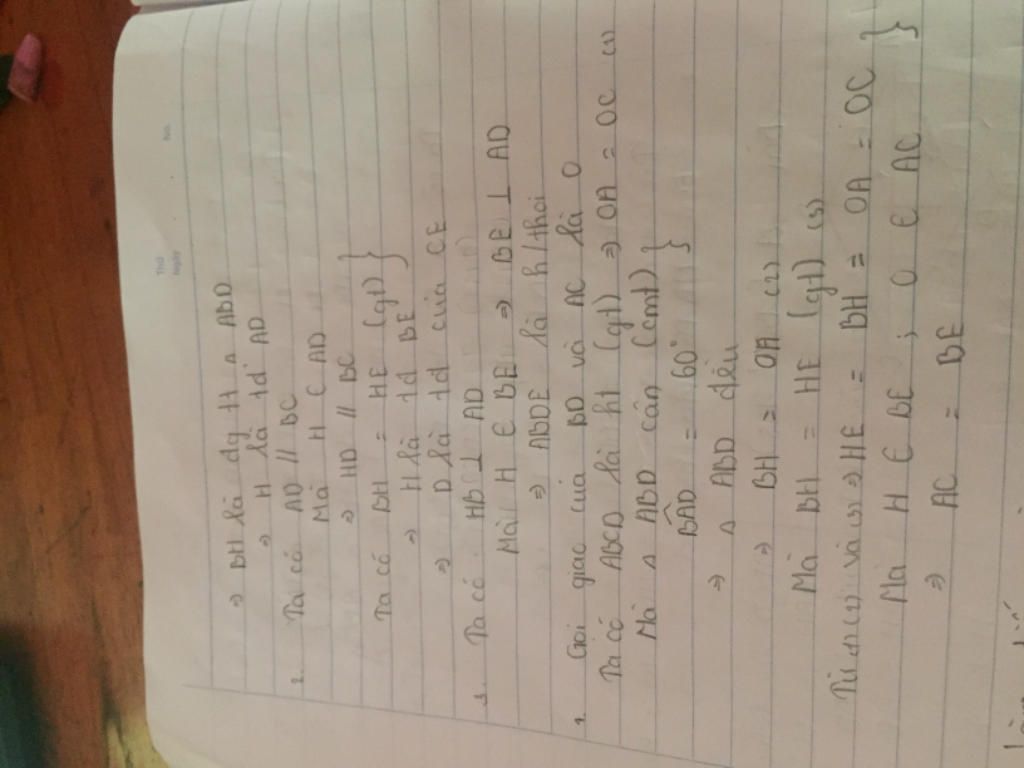 Thứ
Ngày
No.
⇒ BH là đg tt Δ ABD
⇒ H là tđ AD
2. Ta có AD // BC
Mà H ∈ AD
⇒ HD // BC
Ta có BH = HE (gt) }
⇒ H là tđ BE
⇒ D là tđ của CE
3. Ta có HB ⊥ AD
Mà H ∈ BE ⇒ BE ⊥ AD
⇒ ABDE là h/thoi
Gọi giao của BD và AC là O
Ta có ABCD là ht (gt) ⇒ OA = OC (1)
Mà Δ ABD cân (cmt) }
BAD = 60°
⇒ Δ ABD đều
⇒ BH = OA (2)
Mà BH = HE (gt) (3)
Từ (1) (2) và (3) ⇒ HE = BH = OA = OC }
Mà H ∈ BE ; O ∈ AC
⇒ AC = BE